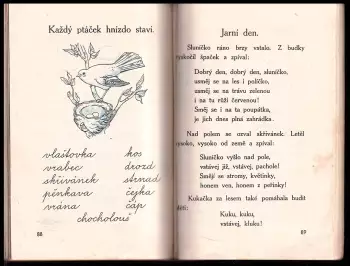 Každý ptáček hnízdo staví.
vlaštovka kos
vrabec drozd
skřivánek strnad
pěnkava čejka
vrána čáp
chocholouš
88
Jarní den.
Sluníčko ráno brzy vstalo. Z budky
vyskočil špaček a zpíval:
Dobrý den, dobrý den, sluníčko,
usměj se na les i políčko,
usměj se na trávu zelenou
i na tu růži červenou!
Směj se i na ta poupátka,
je jich dnes plná zahrádka.
Nad polem se ozval skřivánek. Letěl
vysoko, vysoko od země a zpíval:
Sluníčko vyšlo nad pole,
vstávej již, vstávej, pachole!
Smějí se stromy, květinky,
honem ven, honem z peřinky!
Kukačka za lesem také pomáhala budit
děti:
Kuku, kuku,
vstávej, kluku!
89